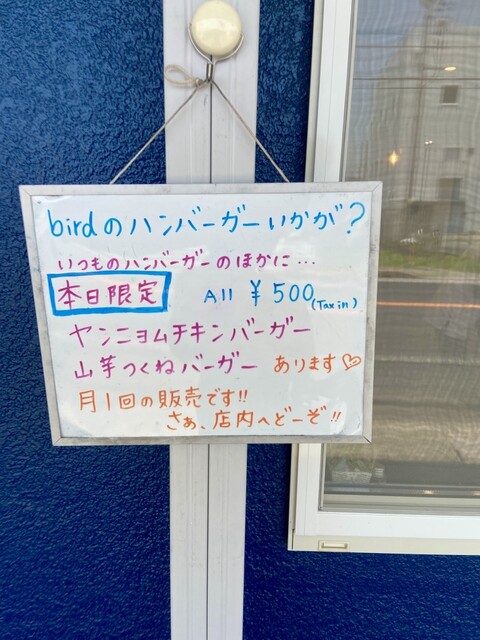 birdのハンバーガーいかが?
いつものハンバーガーのほかに…
本日限定 All ¥500(Tax in)
ヤンニョムチキンバーガー
山芋つくねバーガー あります♡
月1回の販売です!!
さぁ、店内へどーぞ!!